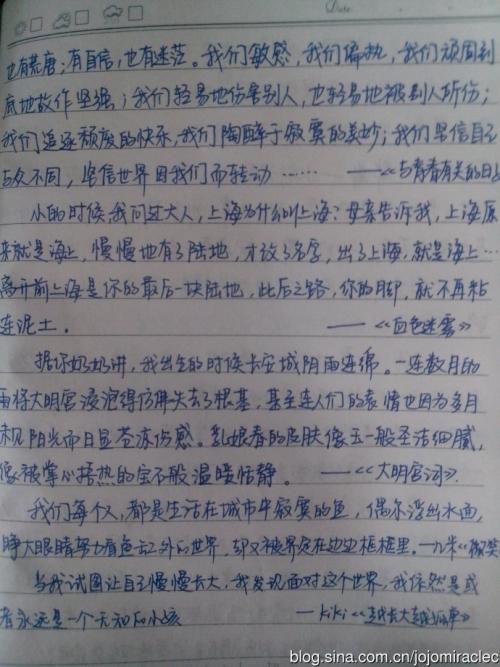 Date
也有荒唐；有自信，也有迷茫。我们敏感，我们偏执，我们顽固到
底地故作坚强；我们轻易地伤害别人，也轻易地被别人所伤；
我们追逐颓废的快乐，我们陶醉于寂寞的美妙；我们坚信自己
与众不同，坚信世界因我们而转动 …… ——《与青春有关的日
小的时候，我问过大人，上海为什么叫上海？母亲告诉我，上海原
来就是海上，慢慢地有了陆地，才改了名字，出了上海，就是海上…
离开前上海是你的最后一块陆地，此后之路，你的脚，就不再粘
连泥土。 ——《血色迷雾》
据你奶奶讲，我出生的时候长安城阴雨连绵。一连数月的
雨将大明宫浸泡得仿佛失去了根基，甚至连人们的表情也因为多月
未见阳光而日显苍冻伤感。乳娘春的皮肤像玉一般圣洁细腻，
像被掌心捂热的宝石般温暖恬静。 ——《大明宫词》
我们每个人，都是生活在城市中寂寞的鱼，偶尔浮出水面，
睁大眼睛努力看鱼缸外的世界，却又被界定在边边框框里。—九米《微笑
当我试图让自己慢慢长大，我发现面对这个世界，我依然是或
者永远是一个无知的小孩 —kiki《越长大越孤单》
blog.sina.com.cn/jojomiraclec